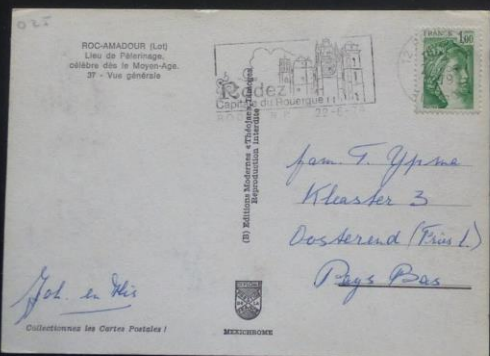 025
ROC-AMADOUR (Lot)
Lieu de Pèlerinage,
célèbre dès le Moyen-Age.
37 - Vue générale
Rodez
Capitale du Rouergue
FRANCE
1,00
(B) Editions Modernes « Théojac », Limoges
Reproduction interdite
fam. T. Ypma
Klaaster 3
Oosterend (Friesl.)
Pays Bas
Joh. en
Collectionnez les Cartes Postales !
MEXICHROME